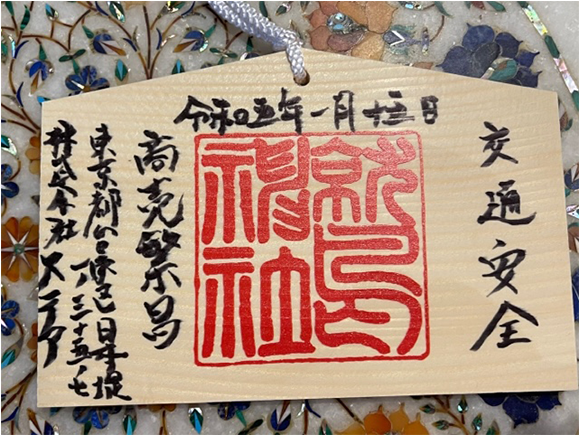 令和五年一月十三日
交通安全
鷲神社
商売繁昌
東京都台東区日本堤
三十五ノ七
株式会社ステア